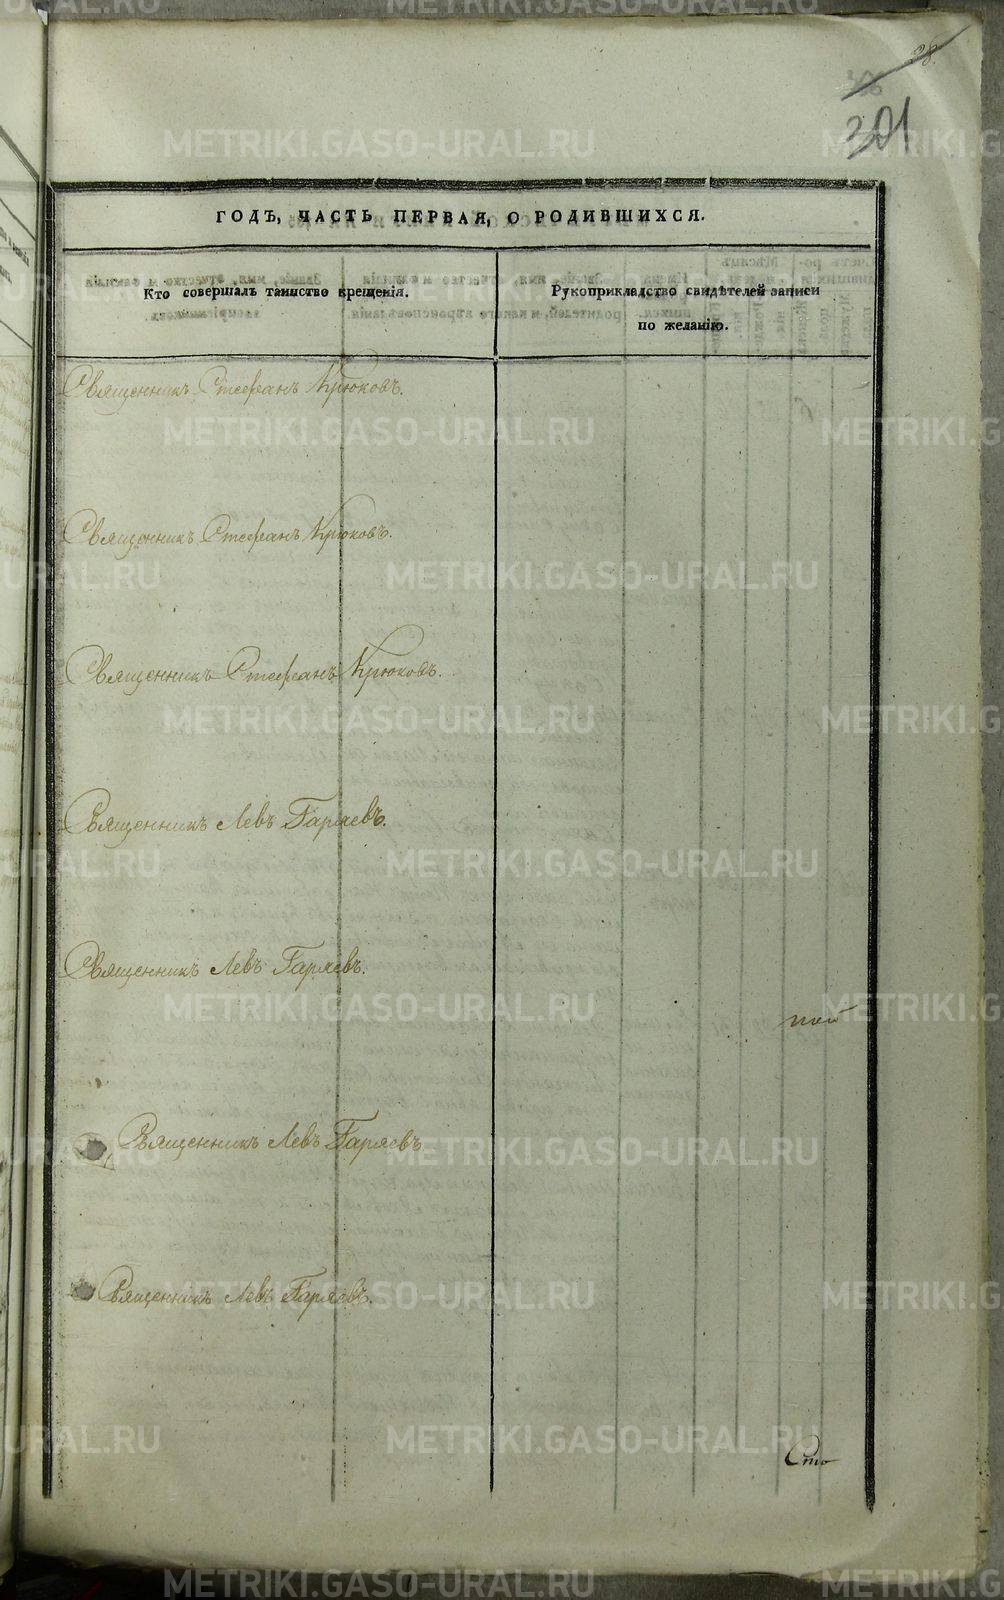 28.
301
ГОДЪ, ЧАСТЬ ПЕРВАЯ, О РОДИВШИХСЯ.
Кто совершалъ таинство крещенія.
Рукоприкладство свидѣтелей записи
по желанію.
Священникъ Стефанъ Крюковъ.
Священникъ Стефанъ Крюковъ.
Священникъ Стефанъ Крюковъ.
Священникъ Левъ Гаряевъ.
Священникъ Левъ Гаряевъ.
Священникъ Левъ Гаряевъ
Священникъ Левъ Гаряевъ.
Сто
METRIKI.GASO-URAL.RU